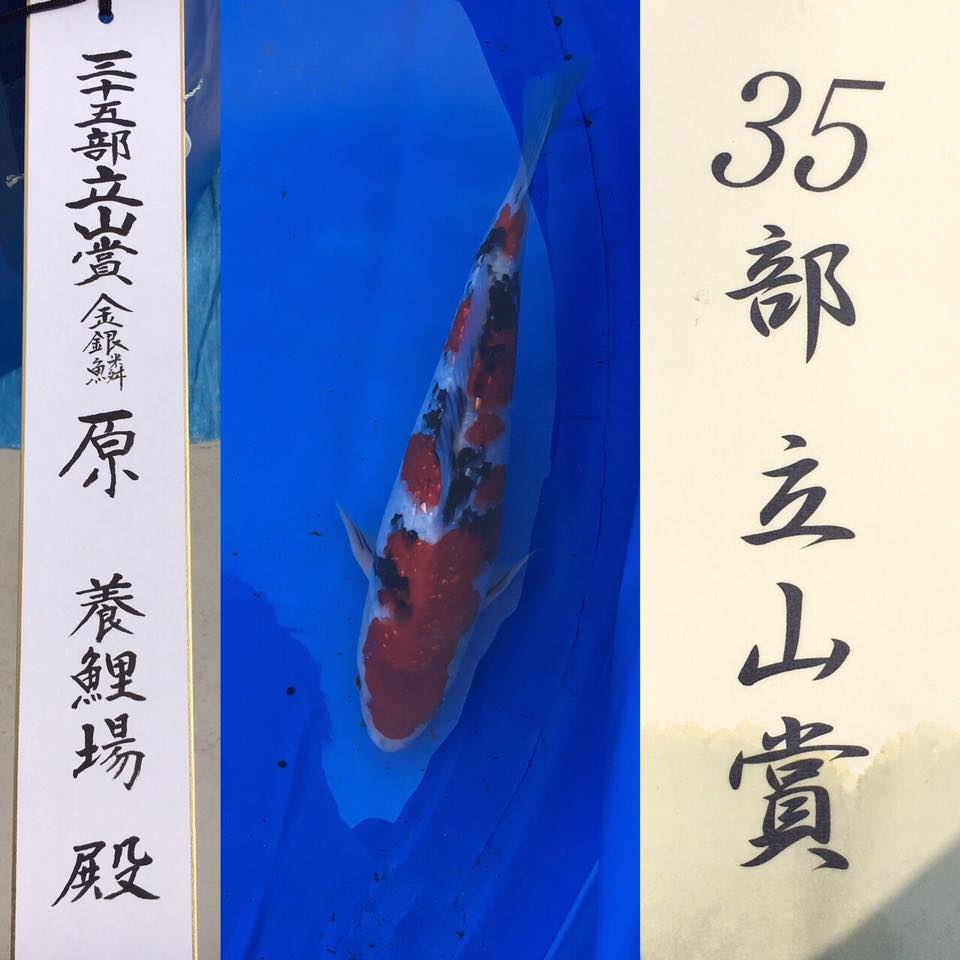 三十五部立山賞 金銀鱗 原 養鯉場 殿
35部 立山賞